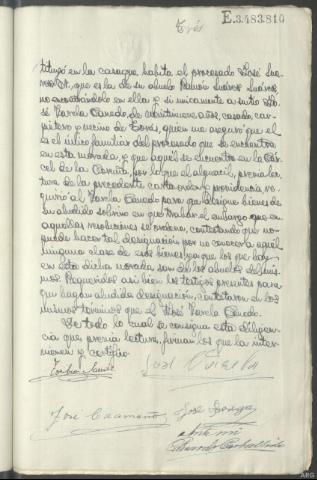 E.3483810
Tres
tituyó en la casa que habita el procesado José Sua-
que es la de su abuelo Ramón Suárez Suárez
no encontrándolo en ella y si unicamente a su tio Jo-
sé Varela Canedo de veintinueve años, casado, car-
pintero y vecino de quien me aseguró que el
es el único familiar del procesado que se encuentra
en esta morada, y que aquél se encuentra en la Cár-
cel de la Coruña, por lo que el alguacil, previa lec-
tura de la precedente carta orden y providencia, re-
quirió al Varela Canedo para que designe bienes de
su aludido sobrino en que trabar el embargo que en
aquellas resoluciones se ordena, contestando que no
puede hacer tal designación por no conocer a aquél
ninguna clase de esos bienes, ya que los que hay
en esta dicha morada son de los abuelos del mis-
mo. Requeridos así bien los testigos presentes para
que hagan aludida designación, contestaron en los
mismos términos que el José Varela Canedo.
De todo lo cual se consigna esta diligen-
cia que, previa lectura, firman los que la inter-
vienen y certifico.
José Varela
José Caamaño José
Ante mi
ARG